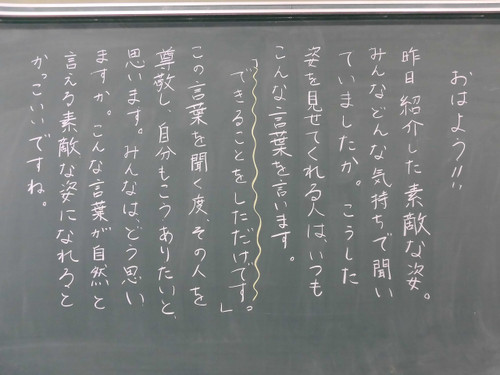 おはよう!!
昨日紹介した素敵な姿。
みんなどんな気持ちで聞い
ていましたか。こうした
姿を見せてくれる人は、いつも
こんな言葉を言います。
「できることをしただけです。」
この言葉を聞く度、その人を
尊敬し、自分もこうありたいと、
思います。みんなは、どう思い
ますか。こんな言葉が自然と
言える素敵な姿になれると
かっこいいですね。